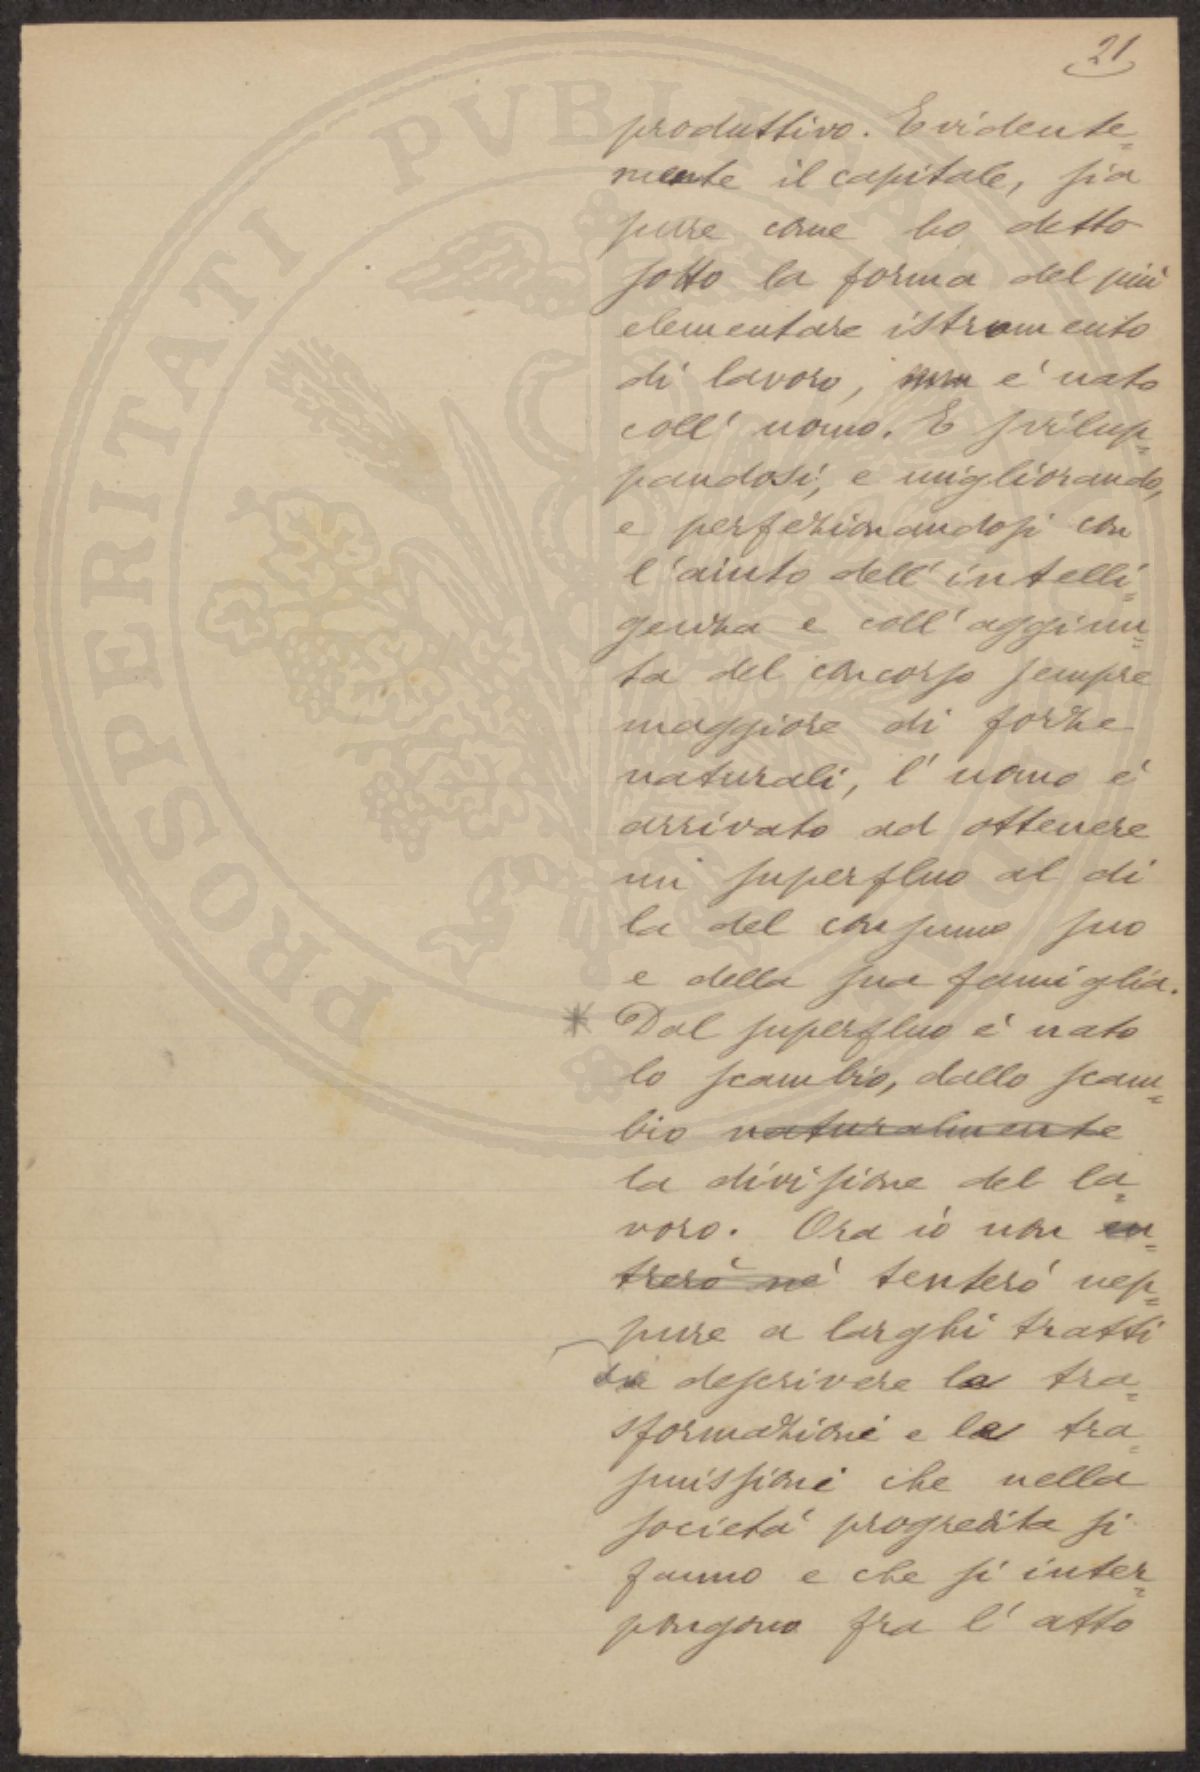 21
produttivo. Evidente=
mente il capitale, sia
pure come ho detto
sotto la forma del più
elementare istrumento
di lavoro, è nato
coll' uomo. E svilup=
pandosi, e migliorando,
e perfezionandosi con
l'aiuto dell' intelli=
genza e coll' aggiun=
ta del concorso sempre
maggiore di forze
naturali, l' uomo è
arrivato ad ottenere
un superfluo al di
la del consumo suo
e della sua famiglia.
* Dal superfluo è nato
lo scambio, dallo scam=
bio naturalmente
la divisione del la=
voro. Ora io non en=
trerò nè tenterò nep=
pure a larghi tratti
di descrivere le tra=
sformazioni e le tra=
smissioni che nella
società progredita si
fanno e che si inter=
pongono fra l' atto
PROSPERITATI PVBLICAE